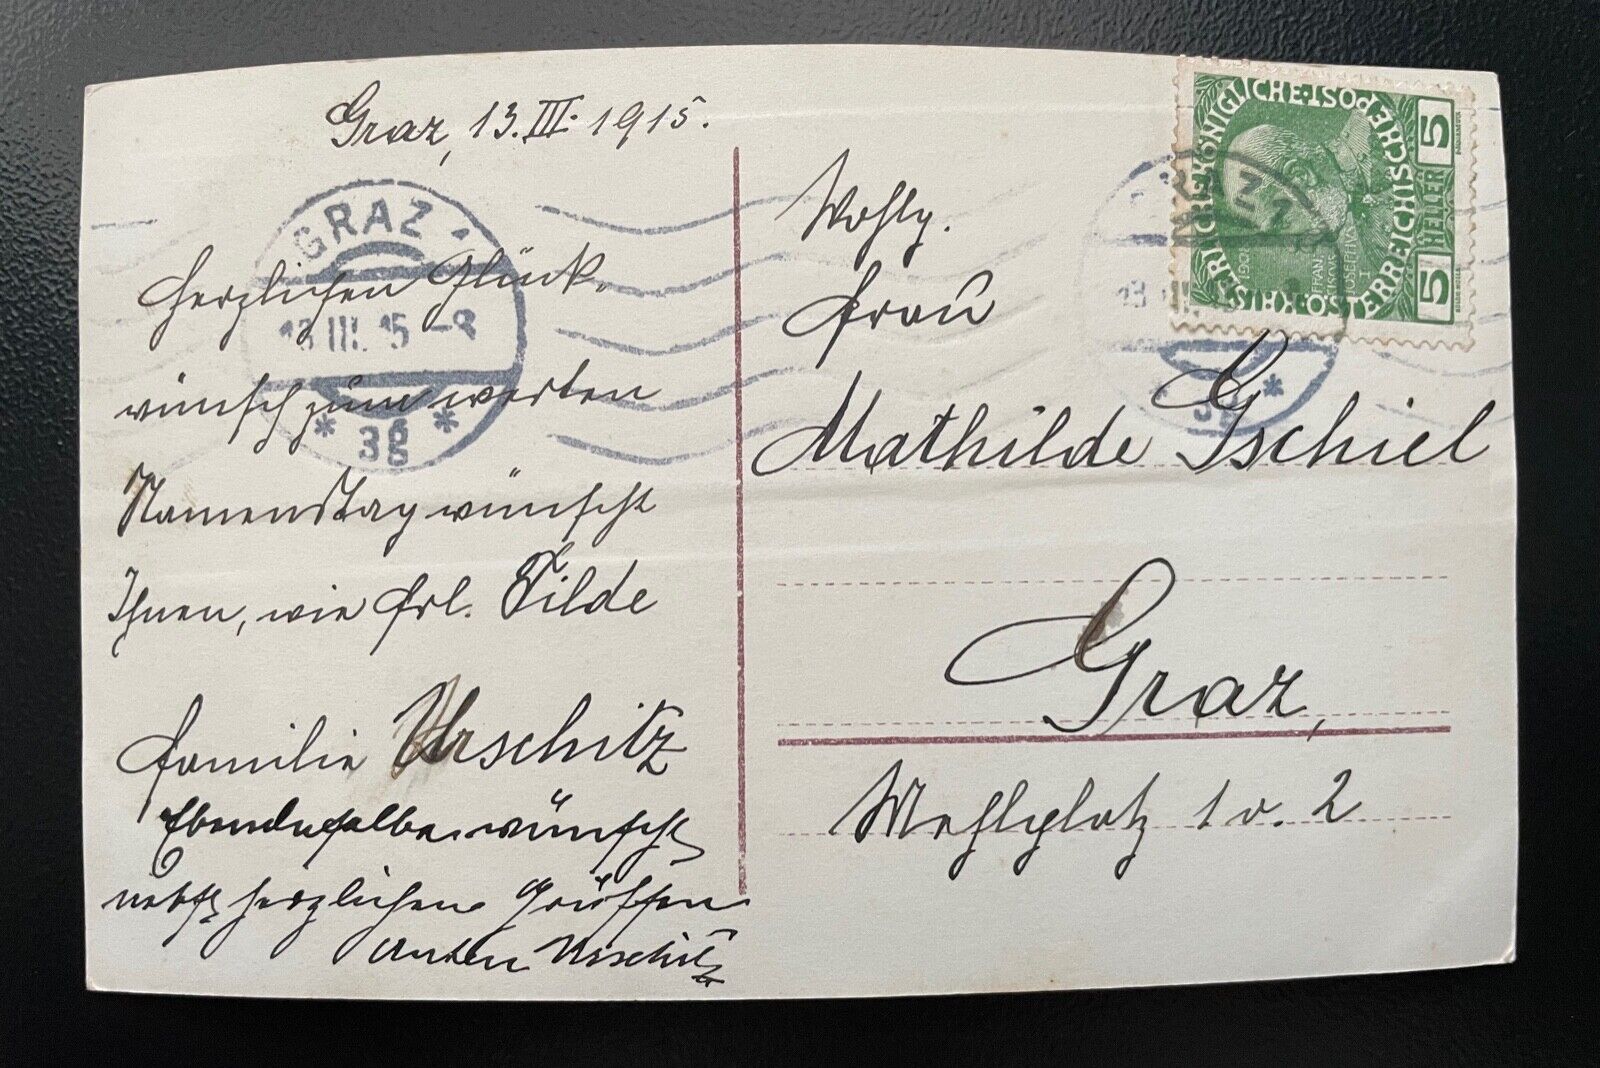 Graz, 13.III.1915.
Herzlichen Glück-
wünsch zum werten
Namenstag wünscht
Ihnen, wie Frl. Tilde
Familie Urschitz
Ebendasselbe wünscht
nebst herzlichen Grüssen
Anton Urschitz
Wohlg.
Frau
Mathilde Gschiel
Graz,
Mehlplatz 1 o. 2
GRAZ 1
13 III. 15 - 8
* 3g *
KAISERLICHE KÖNIGLICHE ÖSTERREICHISCHE POST
5 HELLER 5